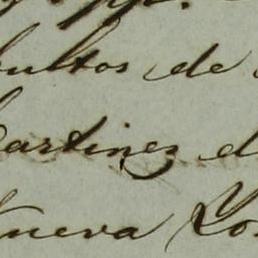 bultos de
artinez d
nueva Yo